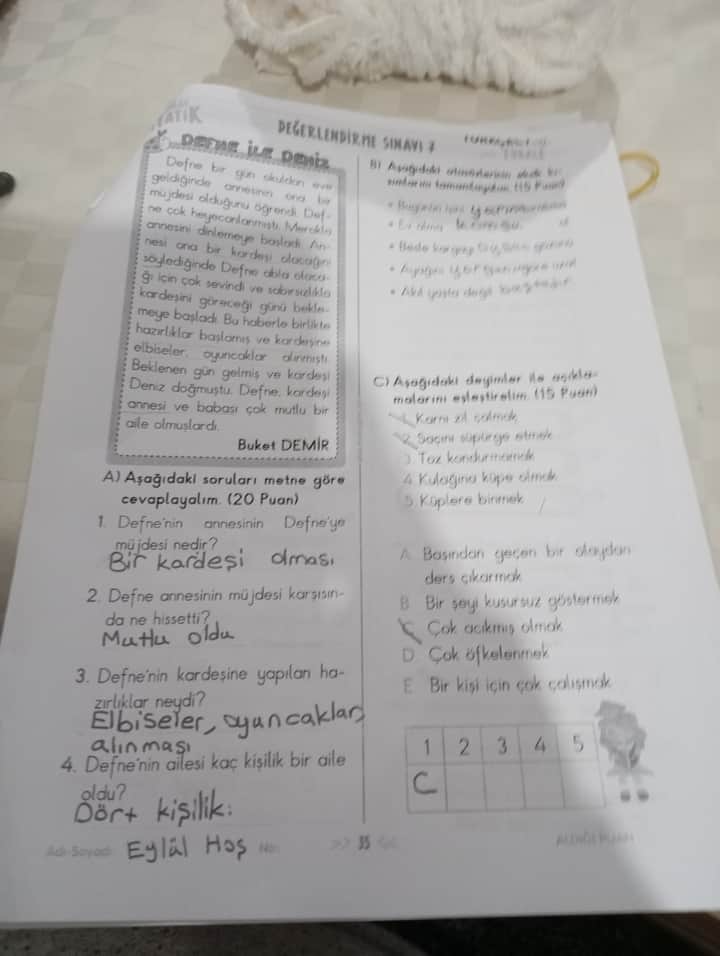 DEĞERLENDİRME SINAVI 7
DEFNE İLE DENİZ
Defne bir gün okuldan eve
geldiğinde annesinin ona bir
müjdesi olduğunu öğrendi. Def-
ne çok heyecanlanmıştı. Merakla
annesini dinlemeye başladı. An-
nesi ona bir kardeşi olacağını
söylediğinde Defne abla olaca-
ğı için çok sevindi ve sabırsızlıkla
kardeşini göreceği günü bekle-
meye başladı. Bu haberle birlikte
hazırlıklar başlamış ve kardeşine
elbiseler, oyuncaklar alınmıştı.
Beklenen gün gelmiş ve kardeşi
Deniz doğmuştu. Defne, kardeşi
annesi ve babası çok mutlu bir
aile olmuşlardı.
Buket DEMİR
A) Aşağıdaki soruları metne göre
cevaplayalım. (20 Puan)
1. Defne'nin annesinin Defne'ye
müjdesi nedir?
Bir kardeşi olması
2. Defne annesinin müjdesi karşısın-
da ne hissetti?
Mutlu oldu
3. Defne'nin kardeşine yapılan ha-
zırlıklar neydi?
Elbiseler, oyuncaklar
alınması
4. Defne'nin ailesi kaç kişilik bir aile
oldu?
Dört kişilik.
Adı-Soyadı: Eylül Hoş No:
B) Aşağıdaki
tamamlayalım. (15 Puan)
C) Aşağıdaki deyimler ile açıkla-
malarını eşleştirelim. (15 Puan)
1. Karnı zil çalmak
2. Saçını süpürge etmek
3. Toz kondurmamak
4. Kulağına küpe olmak
5. Küplere binmek
A. Başından geçen bir olaydan
ders çıkarmak
B. Bir şeyi kusursuz göstermek
C. Çok acıkmış olmak
D. Çok öfkelenmek
E. Bir kişi için çok çalışmak
1 2 3 4 5
C
35